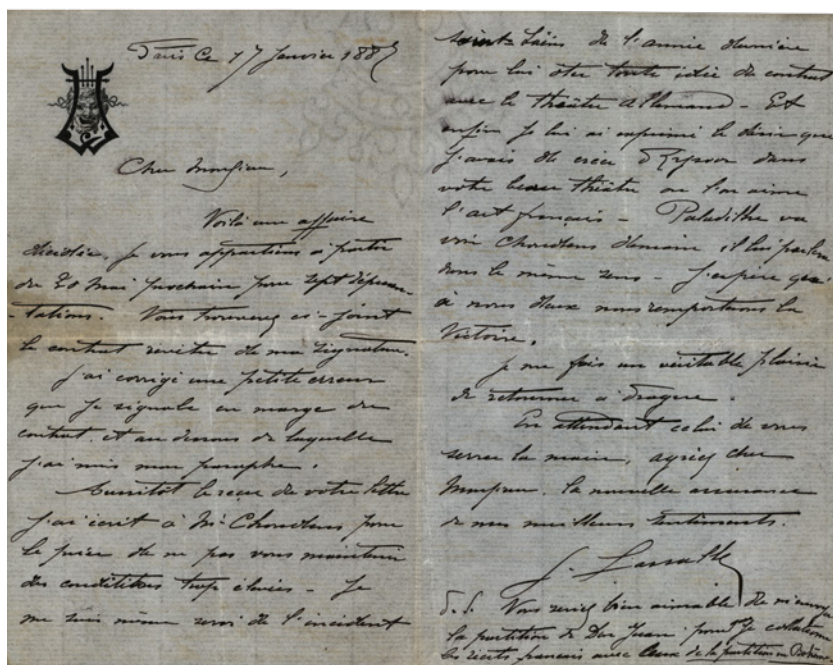 Paris Ce 17 Janvier 188
Cher Monsieur,
Voilà une affaire
décidée, je vous appartiens à partir
du 20 Mai prochain pour sept représen-
-tations. Vous trouverez ci-joint
le contrat revêtu de ma signature.
J'ai corrigé une petite erreur
que je signale en marge du
contrat, et au dessous de laquelle
j'ai mis mon paraphe.
Aussitôt le reçu de votre lettre
j'ai écrit à Mr Choudens pour
le prier de ne pas vous maintenir
des conditions trop élevées - Je
me suis même servi de l'incident
Saint-Saëns de l'année dernière
pour lui ôter toute idée de contrat
avec le théâtre Allemand - Et
enfin je lui ai exprimé le désir que
j'avais de créer Rysoor dans
votre beau théâtre où l'on aime
l'art français - Paladilhe va
voir Choudens demain, il lui parlera
dans le même sens - J'espère qu'
à nous deux nous remporterons la
Victoire.
Je me fais un véritable plaisir
de retourner à Prague.
En attendant celui de vous
serrer la main, agréez cher
Monsieur, la nouvelle assurance
de mes meilleurs sentiments.
J. Lassalle
P.S. Vous seriez bien aimable de m'envoyer
la partition de Don Juan pour je collationne
les récits français avec ceux de la partition en Bohème